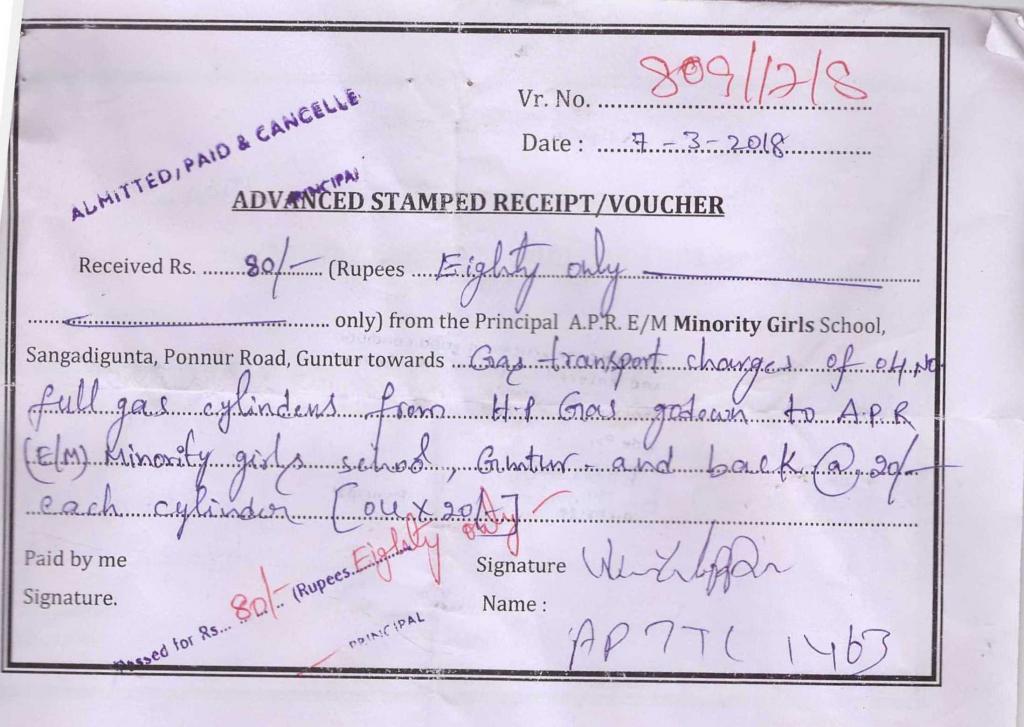 Vr. No. 809/17/8
Date : 7-3-2018
ALMITTED, PAID & CANCELLE
PRINCIPAL
ADVANCED STAMPED RECEIPT/VOUCHER
Received Rs. 80/- (Rupees Eighty only
only) from the Principal A.P.R. E/M Minority Girls School,
Sangadigunta, Ponnur Road, Guntur towards Gas transport charges of 04.No
full gas cylinders from H.P Gas godown to A.P.R
(E/M) Minority girls school, Guntur. and back @ 20/-
each cylinder [04 X 20/-]
Paid by me
Signature.
Passed for Rs... 80/- (Rupees Eighty only
PRINCIPAL
Signature
Name :
AP 7TC 1463